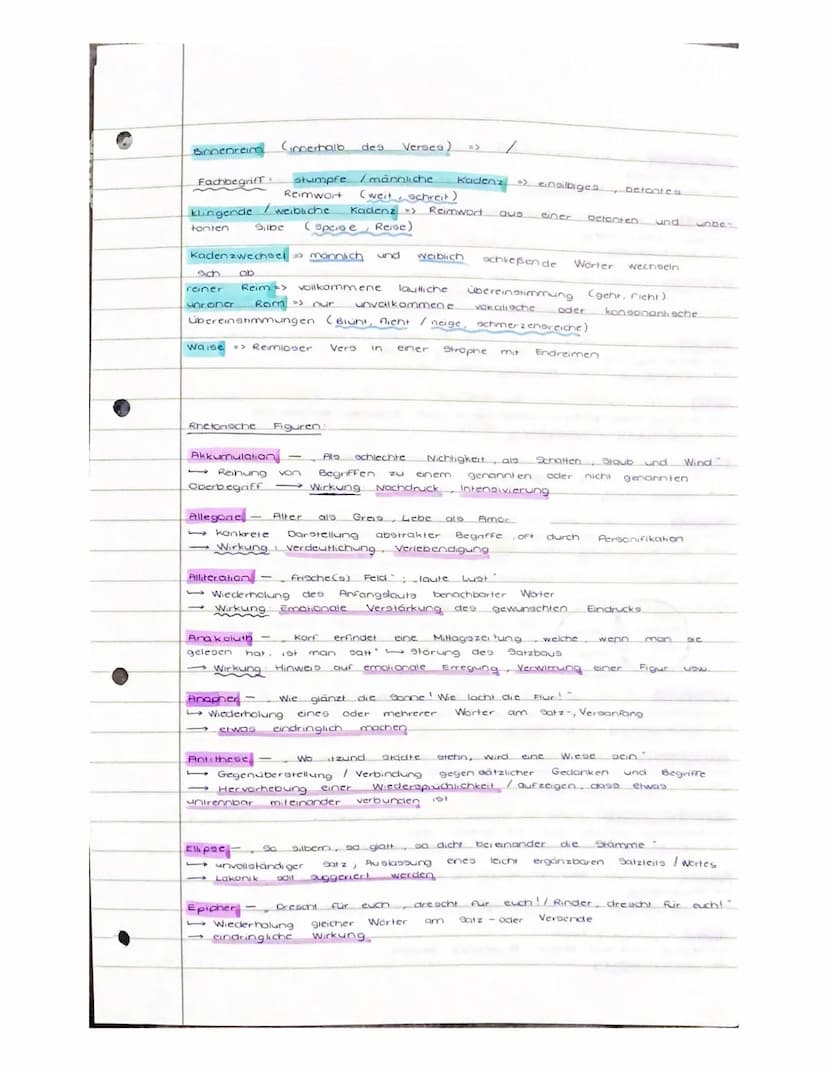 Binnenreim (innerhalb des Verses) => /
Fachbegriff: stumpfe / männliche Kadenz => einsilbiges, betontes
Reimwort (weit, schreit)
klingende / weibliche Kadenz => Reimwort aus einer betonten und unbe-
tonten Silbe (Speise, Reise)
Kadenzwechsel => männlich und weiblich schließende Wörter wechseln
sich ab
reiner Reim => vollkommene lautliche Übereinstimmung (geht, fleht)
unreiner Reim => nur unvollkommene vokalische oder konsonantische
Übereinstimmungen (Blüht, flieht / neige, schmerzensreiche)
Waise => Reimloser Vers in einer Strophe mit Endreimen
Rhetorische Figuren:
Akkumulation – „Als schlechte Nichtigkeit, als Schatten, Staub und Wind"
↳ Reihung von Begriffen zu einem genannten oder nicht genannten
Oberbegriff → Wirkung Nachdruck, Intensivierung
Allegorie – Alter als Greis, Lebe als Amor
↳ konkrete Darstellung abstrakter Begriffe, oft durch Personifikation
→ Wirkung: Verdeutlichung, Verlebendigung
Alliteration – „frische(s) Feld"; „laute Lust"
↳ Wiederholung des Anfangslauts benachbarter Wörter
→ Wirkung: Emotionale Verstärkung des gewünschten Eindrucks
Anakoluth – „Korf erfindet eine Mittagszeitung, welche, wenn man sie
gelesen hat, ist man satt" ↳ Störung des Satzbaus
→ Wirkung: Hinweis auf emotionale Erregung, Verwirrung einer Figur usw.
Anapher – „Wie glänzt die Sonne! Wie lacht die Flur!"
↳ Wiederholung eines oder mehrerer Wörter am Satz-, Versanfang
→ etwas eindringlich machen
Antithese – „Wo itzund Städte stehn, wird eine Wiese sein"
↳ Gegenüberstellung / Verbindung gegensätzlicher Gedanken und Begriffe
→ Hervorhebung einer Wiedersprüchlichkeit / aufzeigen, dass etwas
untrennbar miteinander verbunden ist
Ellipse – „So silbern, so glatt, so dicht beieinander die Stämme"
↳ unvollständiger Satz, Auslassung enes leicht ergänzbaren Satzteils / Wortes
→ Lakonik soll suggeriert werden
Epipher – „Drescht für euch, drescht für euch! / Rinder, drescht für euch!"
↳ Wiederholung gleicher Wörter am Satz- oder Versende
→ eindringliche Wirkung